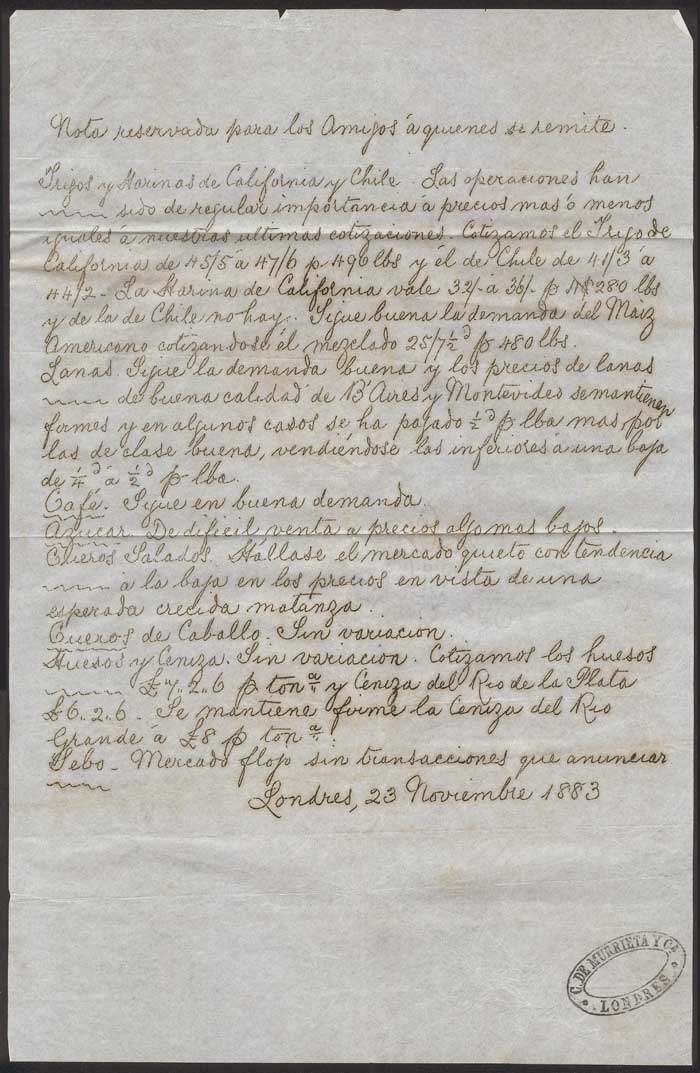 Nota reservada para los Amigos á quienes se remite.
Trigos y Harinas de California y Chile. Las operaciones han
sido de regular importancia á precios mas ó menos
iguales á nuestras ultimas cotizaciones. Cotizamos el Trigo de
California de 45/5 á 47/6 p 496 lbs y él de Chile de 41/3 á
44/2 - La Harina de California vale 32/- á 36/- p 280 lbs
y de la de Chile no hay. Sigue buena la demanda del Máiz
Americano cotizandose él mezclado 25/7½ᵈ p 480 lbs.
Lanas. Sigue la demanda buena y los precios de lanas
de buena calidad de Bˢ Aires y Montevideo se mantienen
firmes y en algunos casos se ha pagado ½ᵈ p lba mas por
las de clase buena, vendiéndose las inferiores á una baja
de ¼ᵈ á ½ᵈ p lba.
Café. Sigue en buena demanda.
Azucar. De dificil venta a precios algo mas bajos.
Cueros Salados. Hállase el mercado quieto con tendencia
á la baja en los precios en vista de una
esperada crecida matanza.
Cueros de Caballo. Sin variacion.
Huesos y Ceniza. Sin variacion. Cotizamos los huesos
£7..2..6 p tonᵃ y Ceniza del Rio de la Plata
£6..2..6. Se mantiene firme la Ceniza del Rio
Grande á £8 p tonᵃ.
Sebo - Mercado flojo sin transacciones que anunciar
Londres, 23 Noviembre 1883
C. DE MURRIETA Y Cª
LONDRES